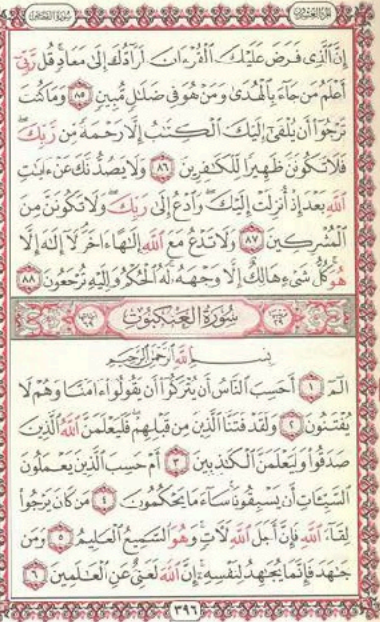 الجزء العشرون
سورة القصص
إِنَّ الَّذِى فَرَضَ عَلَيْكَ الْقُرْءَانَ لَرَآدُّكَ إِلَىٰ مَعَادٍ قُل رَّبِّىٓ
أَعْلَمُ مَن جَآءَ بِالْهُدَىٰ وَمَنْ هُوَ فِى ضَلَٰلٍ مُّبِينٍ ٨٥ وَمَا كُنتَ
تَرْجُوٓا۟ أَن يُلْقَىٰٓ إِلَيْكَ الْكِتَٰبُ إِلَّا رَحْمَةً مِّن رَّبِّكَ
فَلَا تَكُونَنَّ ظَهِيرًا لِّلْكَٰفِرِينَ ٨٦ وَلَا يَصُدُّنَّكَ عَنْ ءَايَٰتِ
اللَّهِ بَعْدَ إِذْ أُنزِلَتْ إِلَيْكَ وَادْعُ إِلَىٰ رَبِّكَ وَلَا تَكُونَنَّ مِنَ
الْمُشْرِكِينَ ٨٧ وَلَا تَدْعُ مَعَ اللَّهِ إِلَٰهًا ءَاخَرَ لَآ إِلَٰهَ إِلَّا
هُوَ كُلُّ شَىْءٍ هَالِكٌ إِلَّا وَجْهَهُۥ لَهُ الْحُكْمُ وَإِلَيْهِ تُرْجَعُونَ ٨٨
سُورَةُ الْعَنكَبُوتِ
بِسْمِ اللَّهِ الرَّحْمَٰنِ الرَّحِيمِ
الٓمٓ ١ أَحَسِبَ النَّاسُ أَن يُتْرَكُوٓا۟ أَن يَقُولُوٓا۟ ءَامَنَّا وَهُمْ لَا
يُفْتَنُونَ ٢ وَلَقَدْ فَتَنَّا الَّذِينَ مِن قَبْلِهِمْ فَلَيَعْلَمَنَّ اللَّهُ الَّذِينَ
صَدَقُوا۟ وَلَيَعْلَمَنَّ الْكَٰذِبِينَ ٣ أَمْ حَسِبَ الَّذِينَ يَعْمَلُونَ
السَّيِّـَٔاتِ أَن يَسْبِقُونَا سَآءَ مَا يَحْكُمُونَ ٤ مَن كَانَ يَرْجُوا۟
لِقَآءَ اللَّهِ فَإِنَّ أَجَلَ اللَّهِ لَءَاتٍ وَهُوَ السَّمِيعُ الْعَلِيمُ ٥ وَمَن
جَٰهَدَ فَإِنَّمَا يُجَٰهِدُ لِنَفْسِهِۦٓ إِنَّ اللَّهَ لَغَنِىٌّ عَنِ الْعَٰلَمِينَ ٦
٣٩٦